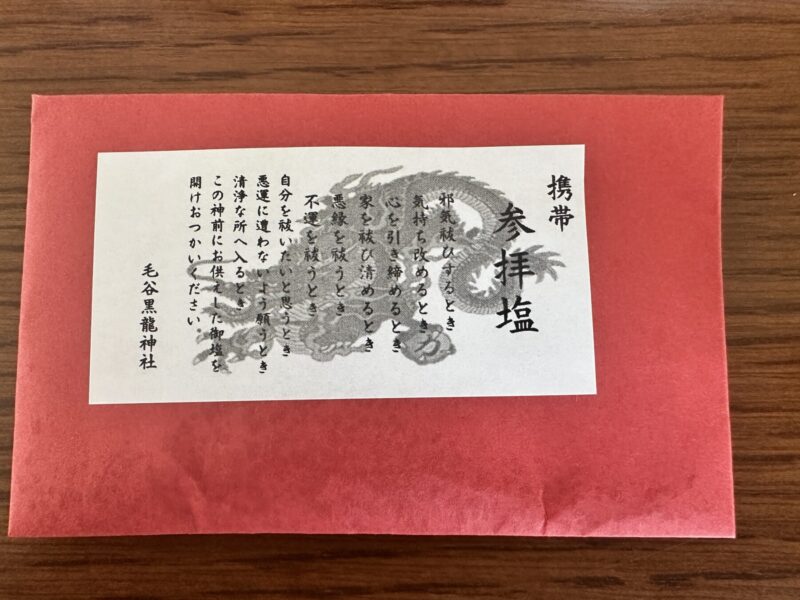 携帯
参拝塩
邪気祓ひするとき
気持ち改めるとき
心を引き締めるとき
家を祓ひ清めるとき
悪縁を祓うとき
不運を祓うとき
自分を祓いたいと思うとき
悪運に遭わないよう願うとき
清浄な所へ入るとき
この神前にお供えした御塩を
開けおつかいください。
毛谷黒龍神社
力